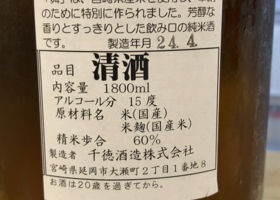 のために特別に作られました。芳醇な
香りとすっきりとした飲み口の純米酒
です。 製造年月 24.4
品目 清酒
内容量 1800ml
アルコール分 15度
原材料名 米(国産)
米麹(国産米)
精米歩合 60%
製造者 千徳酒造株式会社
宮崎県延岡市大瀬町2丁目1番地8
お酒は20歳を過ぎてから。